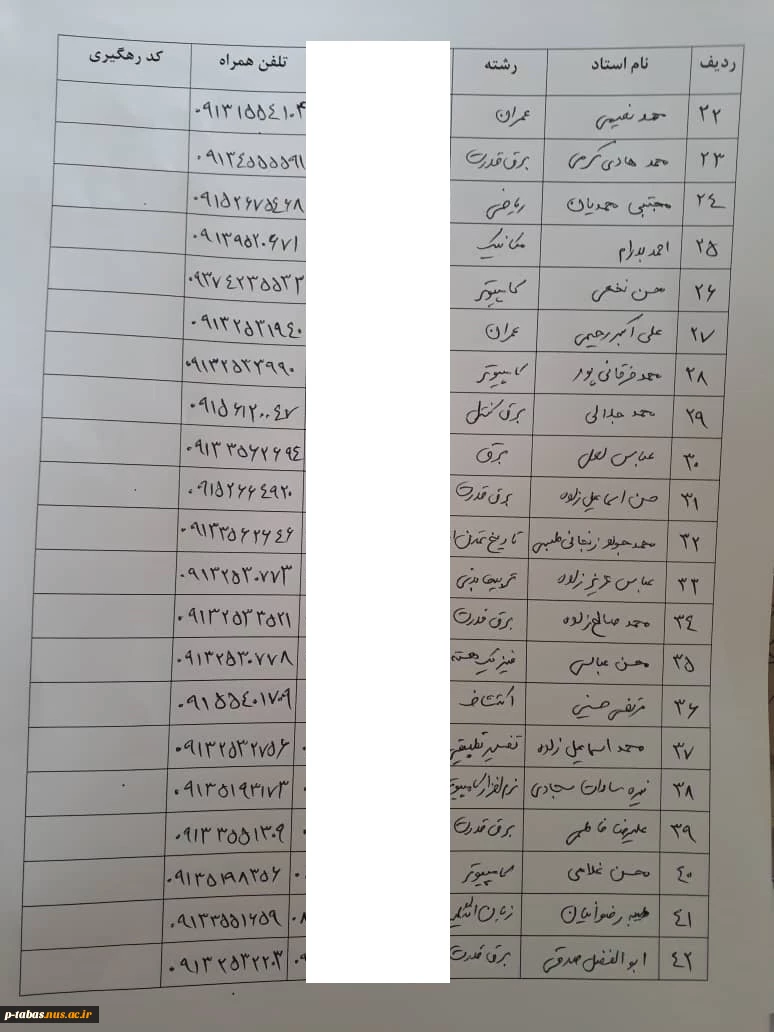 ردیف نام استاد رشته تلفن همراه کد رهگیری
۲۲ محمد نعیمی عمران ۰۹۱۳۱۵۵۴۱۰۴
۲۳ محمد هادی کرمی برق قدرت ۰۹۱۳۴۵۵۵۵۹۱
۲۴ مجتبی محمدیان ریاضی ۰۹۱۵۲۶۷۵۴۶۸
۲۵ احمد پدرام مکانیک ۰۹۱۳۹۵۲۰۶۷۱
۲۶ محسن نخعی کامپیوتر ۰۹۳۷۴۲۳۵۵۳۳
۲۷ علی اکبر رحیمی عمران ۰۹۱۳۲۵۳۱۹۴۰
۲۸ محمد فرقانی پور کامپیوتر ۰۹۱۳۲۵۳۳۹۹۰
۲۹ محمد جدالی برق کنترل ۰۹۱۵۶۱۲۰۰۴۷
۳۰ عباس لعل برق ۰۹۱۳۳۵۶۲۶۹۴
۳۱ حسن اسماعیل زاده برق قدرت ۰۹۱۵۲۶۶۴۹۲۰
۳۲ محمد جواد زنجانی طبسی تاریخ تمدن ۰۹۱۳۳۵۶۲۶۴۶
۳۳ عباس عزیززاده تربیت بدنی ۰۹۱۳۲۵۳۰۷۷۳
۳۴ محمد صالح زاده برق قدرت ۰۹۱۳۲۵۳۳۵۲۱
۳۵ محسن عباسی فیزیک هسته ۰۹۱۳۲۵۳۰۷۷۸
۳۶ مرتضی حسینی اکتشاف ۰۹۱۵۵۴۰۱۷۰۹
۳۷ محمد اسماعیل زاده تفسیر تطبیقی ۰۹۱۳۲۵۳۲۷۵۶
۳۸ نیره سادات سجادی نرم افزار کامپیوتر ۰۹۱۳۵۱۹۳۱۷۳
۳۹ علیرضا فاطمی برق قدرت ۰۹۱۳۳۵۵۱۳۰۹
۴۰ محسن غلامی کامپیوتر ۰۹۱۳۵۱۹۸۳۵۶
۴۱ طیبه رضوانیان زبان انگلیسی ۰۹۱۳۳۵۵۱۶۵۹
۴۲ ابوالفضل صدقی برق قدرت ۰۹۱۳۲۵۳۲۲۰۳
p-tabas.nus.ac.ir